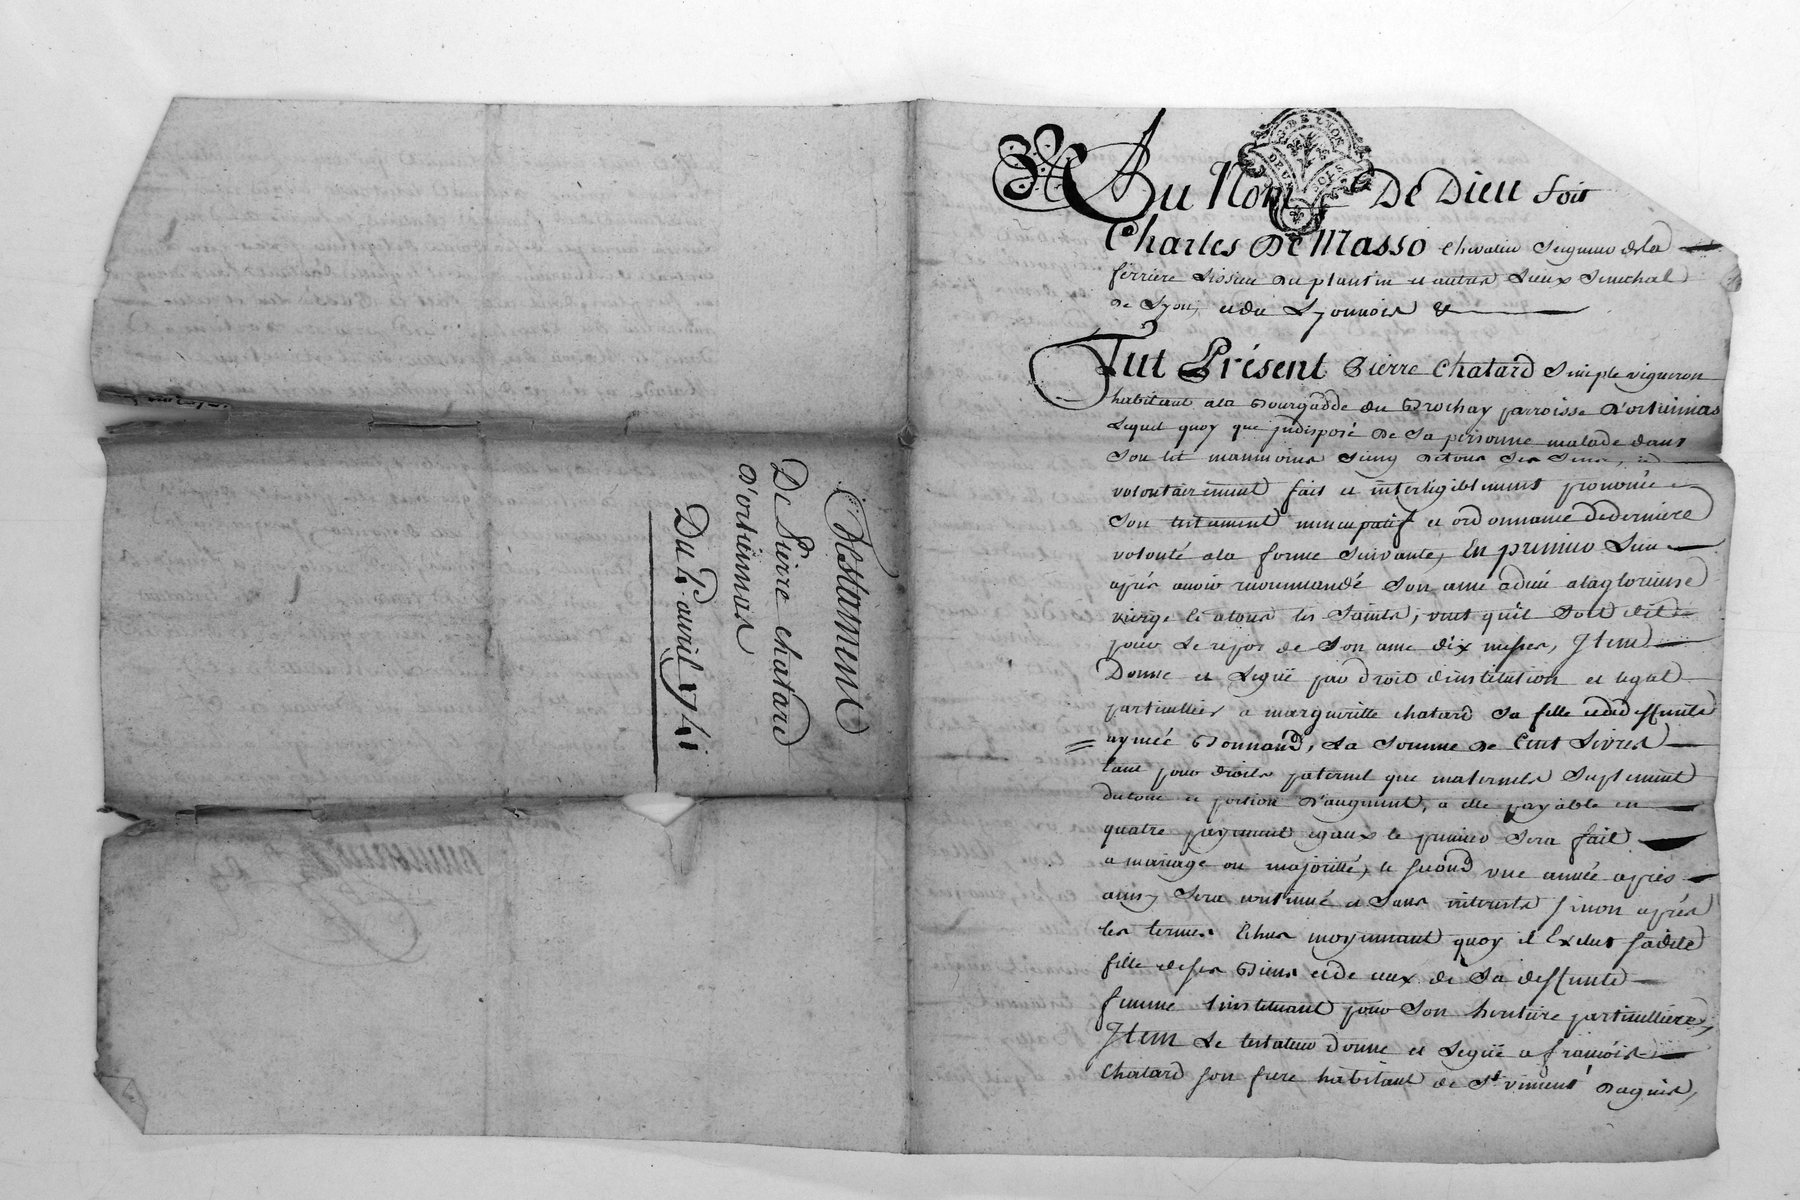 Testament
De Pierre chatard
D'ortuimas
Du 4e. avril 1741
Au Nom De Dieu soit
Charles De Masso chevalier Seigneur de la
ferriere Lissieu Du plantin et autres Lieux Senechal
De Lyon, et du Lyonnois &
Fut Présent Pierre Chatard Simple vigneron
habitant ala Bourgadde du Brochay parroisse D'ortuimas
Lequel quoy que jndisposé De Sa personne malade dans
Son lit neanmoins Seing Detous Ses Sens, et
volontairement fait et intteligiblement prononcé
Son testament nuncupatif et ordonnance dederniere
volonté ala forme Suivante, En premier Lieu
aprés avoir recommandé Son ame adieu alaglorieuse
vierge et atous les Saints, veut qu'il Soit dit
pour Le repos de Son ame dix messes, Jtem
Donne et Legüe par droit dinstitution et legat
particullier a margueritte chatard Sa fille etdedeffunte
aymeé Bonnand, La Somme De Cent Livres
tant pour droits paternel que maternels Suplement
diceux et portion D'augment, a elle payable en
quatre payement egaux le premier Sera fait
a mariage ou majoritté, le second une année aprés
ainsy Sera continué et Sans interests sinon aprés
les termes Echus moyennant quoy il Exclut saditte
fille deses Biens etde ceux de Sa deffunte
femme Linstituant pour Son heritiere particulliere,
Jtem Le testateur donne et Legüe a francois
Chatard son frere habitant de St. vincent Dagnis,